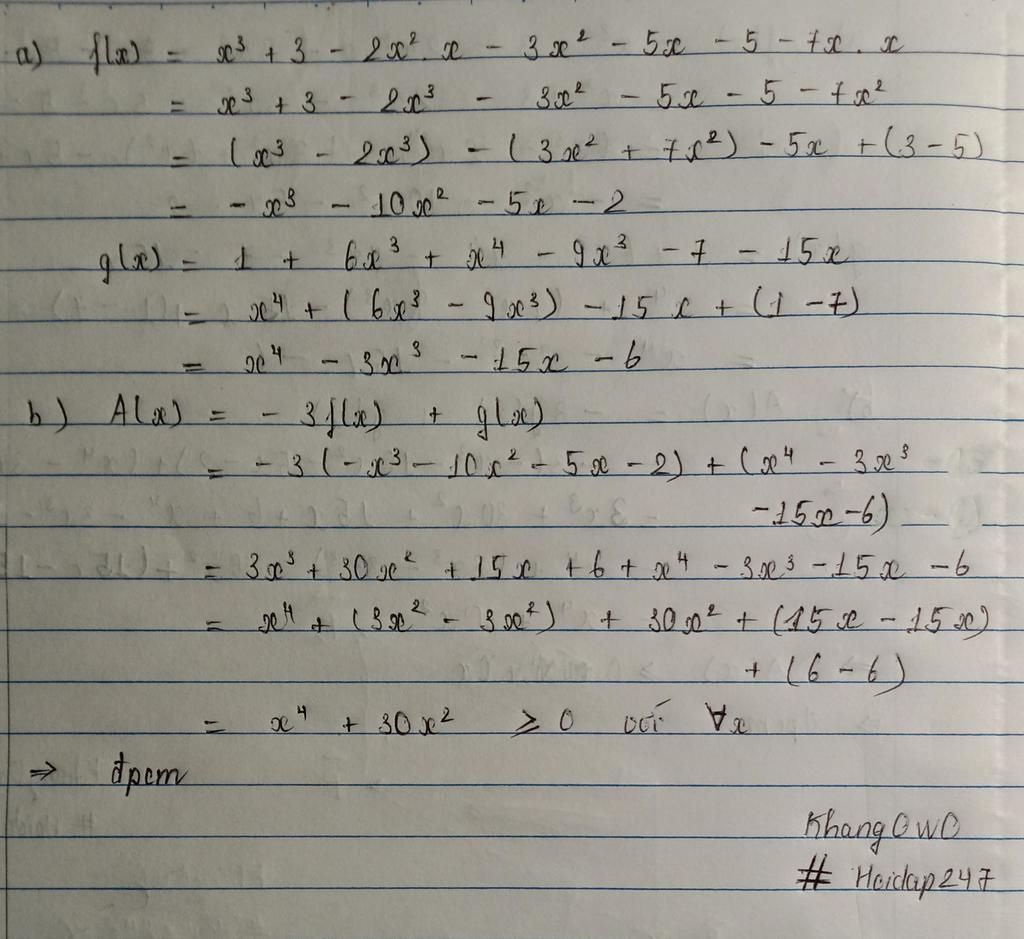 a) f(x) = x³ + 3 - 2x².x - 3x² - 5x - 5 - 7x.x
= x³ + 3 - 2x³ - 3x² - 5x - 5 - 7x²
= (x³ - 2x³) - (3x² + 7x²) - 5x + (3 - 5)
= - x³ - 10x² - 5x - 2
g(x) = 1 + 6x³ + x⁴ - 9x³ - 7 - 15x
= x⁴ + (6x³ - 9x³) - 15x + (1 - 7)
= x⁴ - 3x³ - 15x - 6
b) A(x) = - 3f(x) + g(x)
= - 3 (-x³ - 10x² - 5x - 2) + (x⁴ - 3x³
- 15x - 6)
= 3x³ + 30x² + 15x + 6 + x⁴ - 3x³ - 15x - 6
= x⁴ + (3x² - 3x²) + 30x² + (15x - 15x)
+ (6 - 6)
= x⁴ + 30x² ⩾ 0 với ∀x
⇒ đpcm
KhangOwO
# Hoidap247